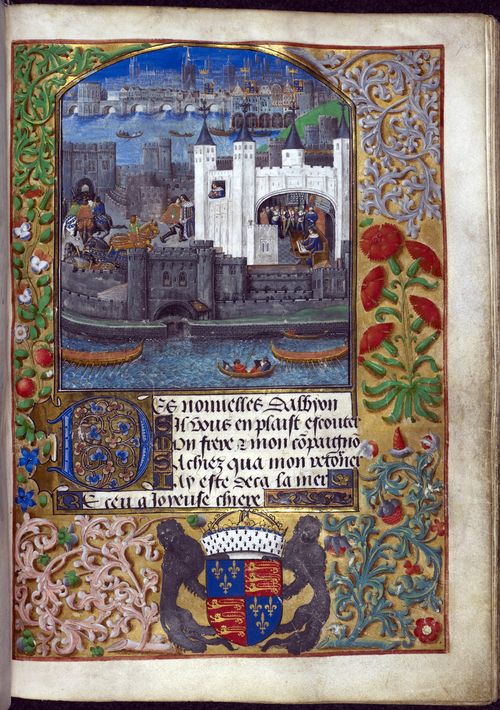 Des nouuelles dalbyon
Sil vous en plaist escouter
Mon frere & mon compaignon
Sachiez qua mon retorner
Jay este deca la mer
Receu a Joyeuse chiere